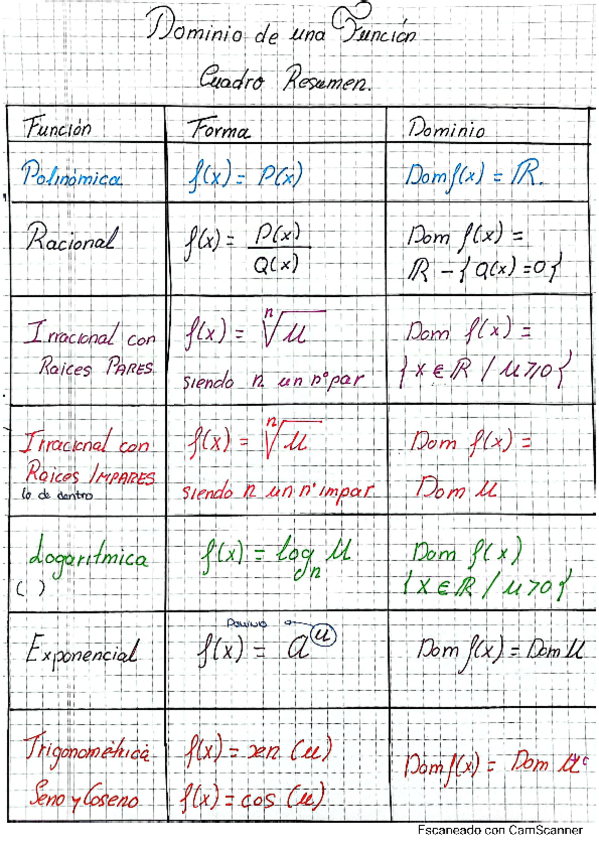 Dominio de una Función
Cuadro Resumen.
Función Forma Dominio
Polinómica f(x) = P(x) Dom f(x) = ℝ.
Racional f(x) = P(x) / Q(x) Dom f(x) =
ℝ - { Q(x) = 0 }
Irracional con f(x) = ⁿ√u Dom f(x) =
Raices PARES. siendo n un nº par { x ∈ ℝ / u ≥ 0 }
Irracional con f(x) = ⁿ√u Dom f(x) =
Raices IMPARES siendo n un nº impar Dom u
lo de dentro
Logarítmica f(x) = logₙ u Dom f(x)
( ) { x ∈ ℝ / u > 0 }
Dominio
Exponencial f(x) = a^u Dom f(x) = Dom u
Trigonométrica f(x) = sen (u) Dom f(x) = Dom u
Seno y Coseno f(x) = cos (u)
Escaneado con CamScanner